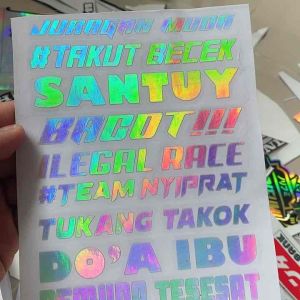 JURAGAN MUDA
#TAKUT BECEK
SANTUY
BACOT!!!
ILEGAL RACE
#TEAM NYIPRAT
TUKANG TAKOK
DO'A IBU
PEMUDA TERSESAT